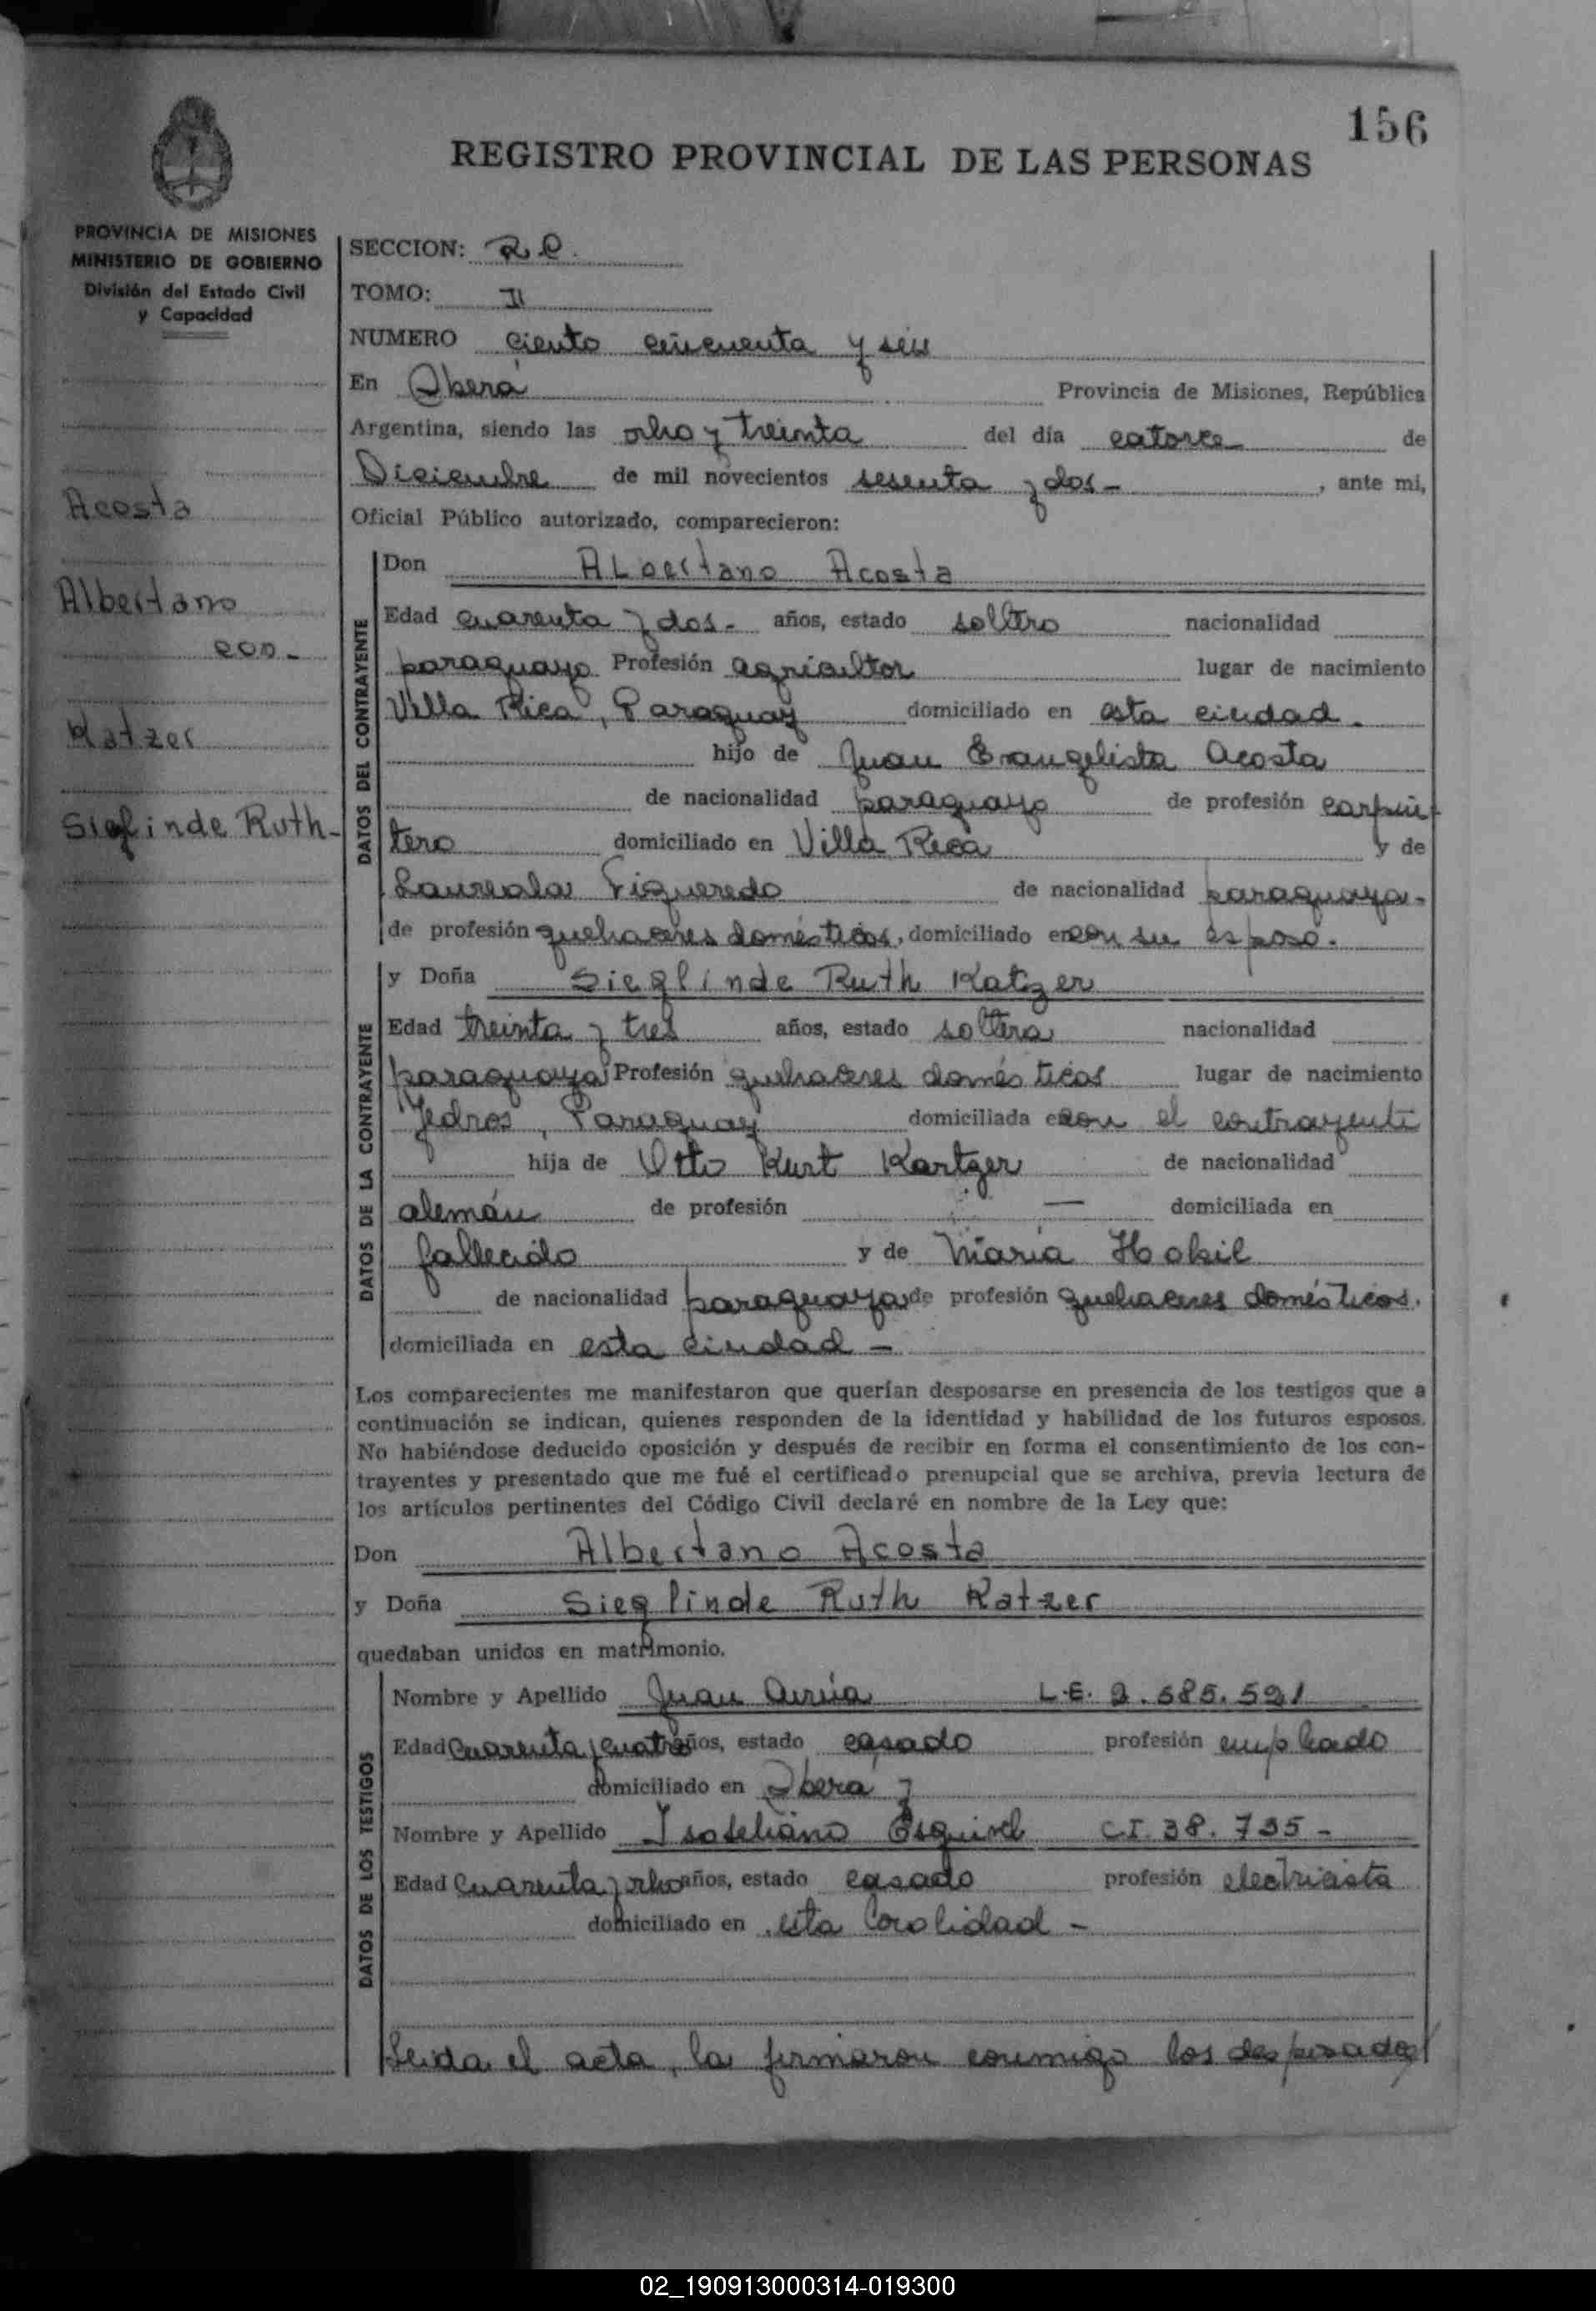 156
REGISTRO PROVINCIAL DE LAS PERSONAS
PROVINCIA DE MISIONES
MINISTERIO DE GOBIERNO
División del Estado Civil
y Capacidad
Acosta
Albertano
con -
Katzer
Sieglinde Ruth -
SECCION: R.C.
TOMO: II
NUMERO ciento cincuenta y seis
En Oberá Provincia de Misiones, República
Argentina, siendo las ocho y treinta del día catorce de
Diciembre de mil novecientos sesenta y dos - , ante mi,
Oficial Público autorizado, comparecieron:
DATOS DEL CONTRAYENTE
Don ALbertano Acosta
Edad cuarenta y dos - años, estado soltero nacionalidad
paraguayo Profesión agricultor lugar de nacimiento
Villa Rica, Paraguay domiciliado en esta ciudad.
hijo de Juan Evangelista Acosta
de nacionalidad paraguayo de profesión carpin
tero domiciliado en Villa Rica y de
Figueredo de nacionalidad paraguaya -
de profesión quehaceres domésticos, domiciliado en con su esposo.
DATOS DE LA CONTRAYENTE
y Doña Sieglinde Ruth Katzer
Edad treinta y tres años, estado soltera nacionalidad
paraguaya Profesión quehaceres domésticos lugar de nacimiento
Paraguay domiciliada con el contrayente
hija de Otto Kurt Kartzer de nacionalidad
alemán de profesión — domiciliada en
fallecido y de María
de nacionalidad paraguaya de profesión quehaceres domésticos.
domiciliada en esta ciudad -
Los comparecientes me manifestaron que querían desposarse en presencia de los testigos que a
continuación se indican, quienes responden de la identidad y habilidad de los futuros esposos.
No habiéndose deducido oposición y después de recibir en forma el consentimiento de los con-
trayentes y presentado que me fué el certificado prenupcial que se archiva, previa lectura de
los artículos pertinentes del Código Civil declaré en nombre de la Ley que:
Don Albertano Acosta
y Doña Sieglinde Ruth Katzer
quedaban unidos en matrimonio.
DATOS DE LOS TESTIGOS
Nombre y Apellido Juan L.E. 2.585.521
Edad cuarenta y cuatro años, estado casado profesión empleado
domiciliado en Oberá y
Nombre y Apellido Esquivel C.I. 38.735 -
Edad cuarenta y ocho años, estado casado profesión electricista
domiciliado en esta localidad -
Leida el acta, la firmaron conmigo los desposados
02_190913000314-019300